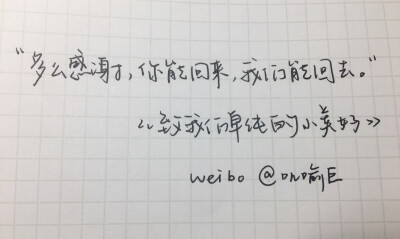 “多么感谢，你能回来，我们能回去。”
《致我们单纯的小美好》
weibo @吣喻巨